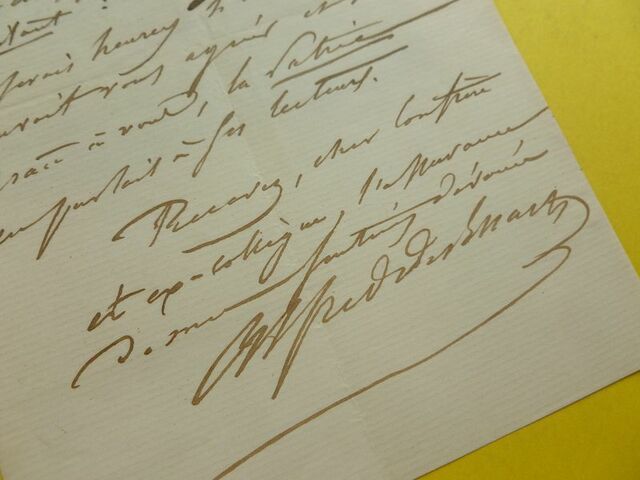 serais heureux
vous agréer et
à vous, la Patrie
parlait à ses lecteurs.
Recevez, cher confrère
et ex-collègue, l'assurance
de mes sentim. dévoués
Alfred des Essarts